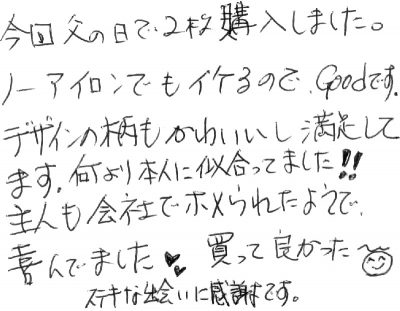 今回父の日で2枚購入しました。
ノーアイロンでもイケるので、Goodです。
デザインの柄もかわいいし満足して
ます。何より本人に似合ってました!!
主人も会社でホメられたようで、
喜んでました♥♥ 買って良かった〜☺
ステキな出会いに感謝です。